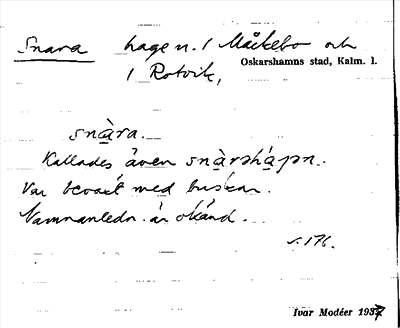 Snara hage n. 1 Måckebo och
1 Rotvik, Oskarshamns stad, Kalm. l.
snàra.
Kallades även snàrshápn.
Var bevaxt med buskar.
Namnanledn. är okänd.
s. 176.
Ivar Modéer 1937